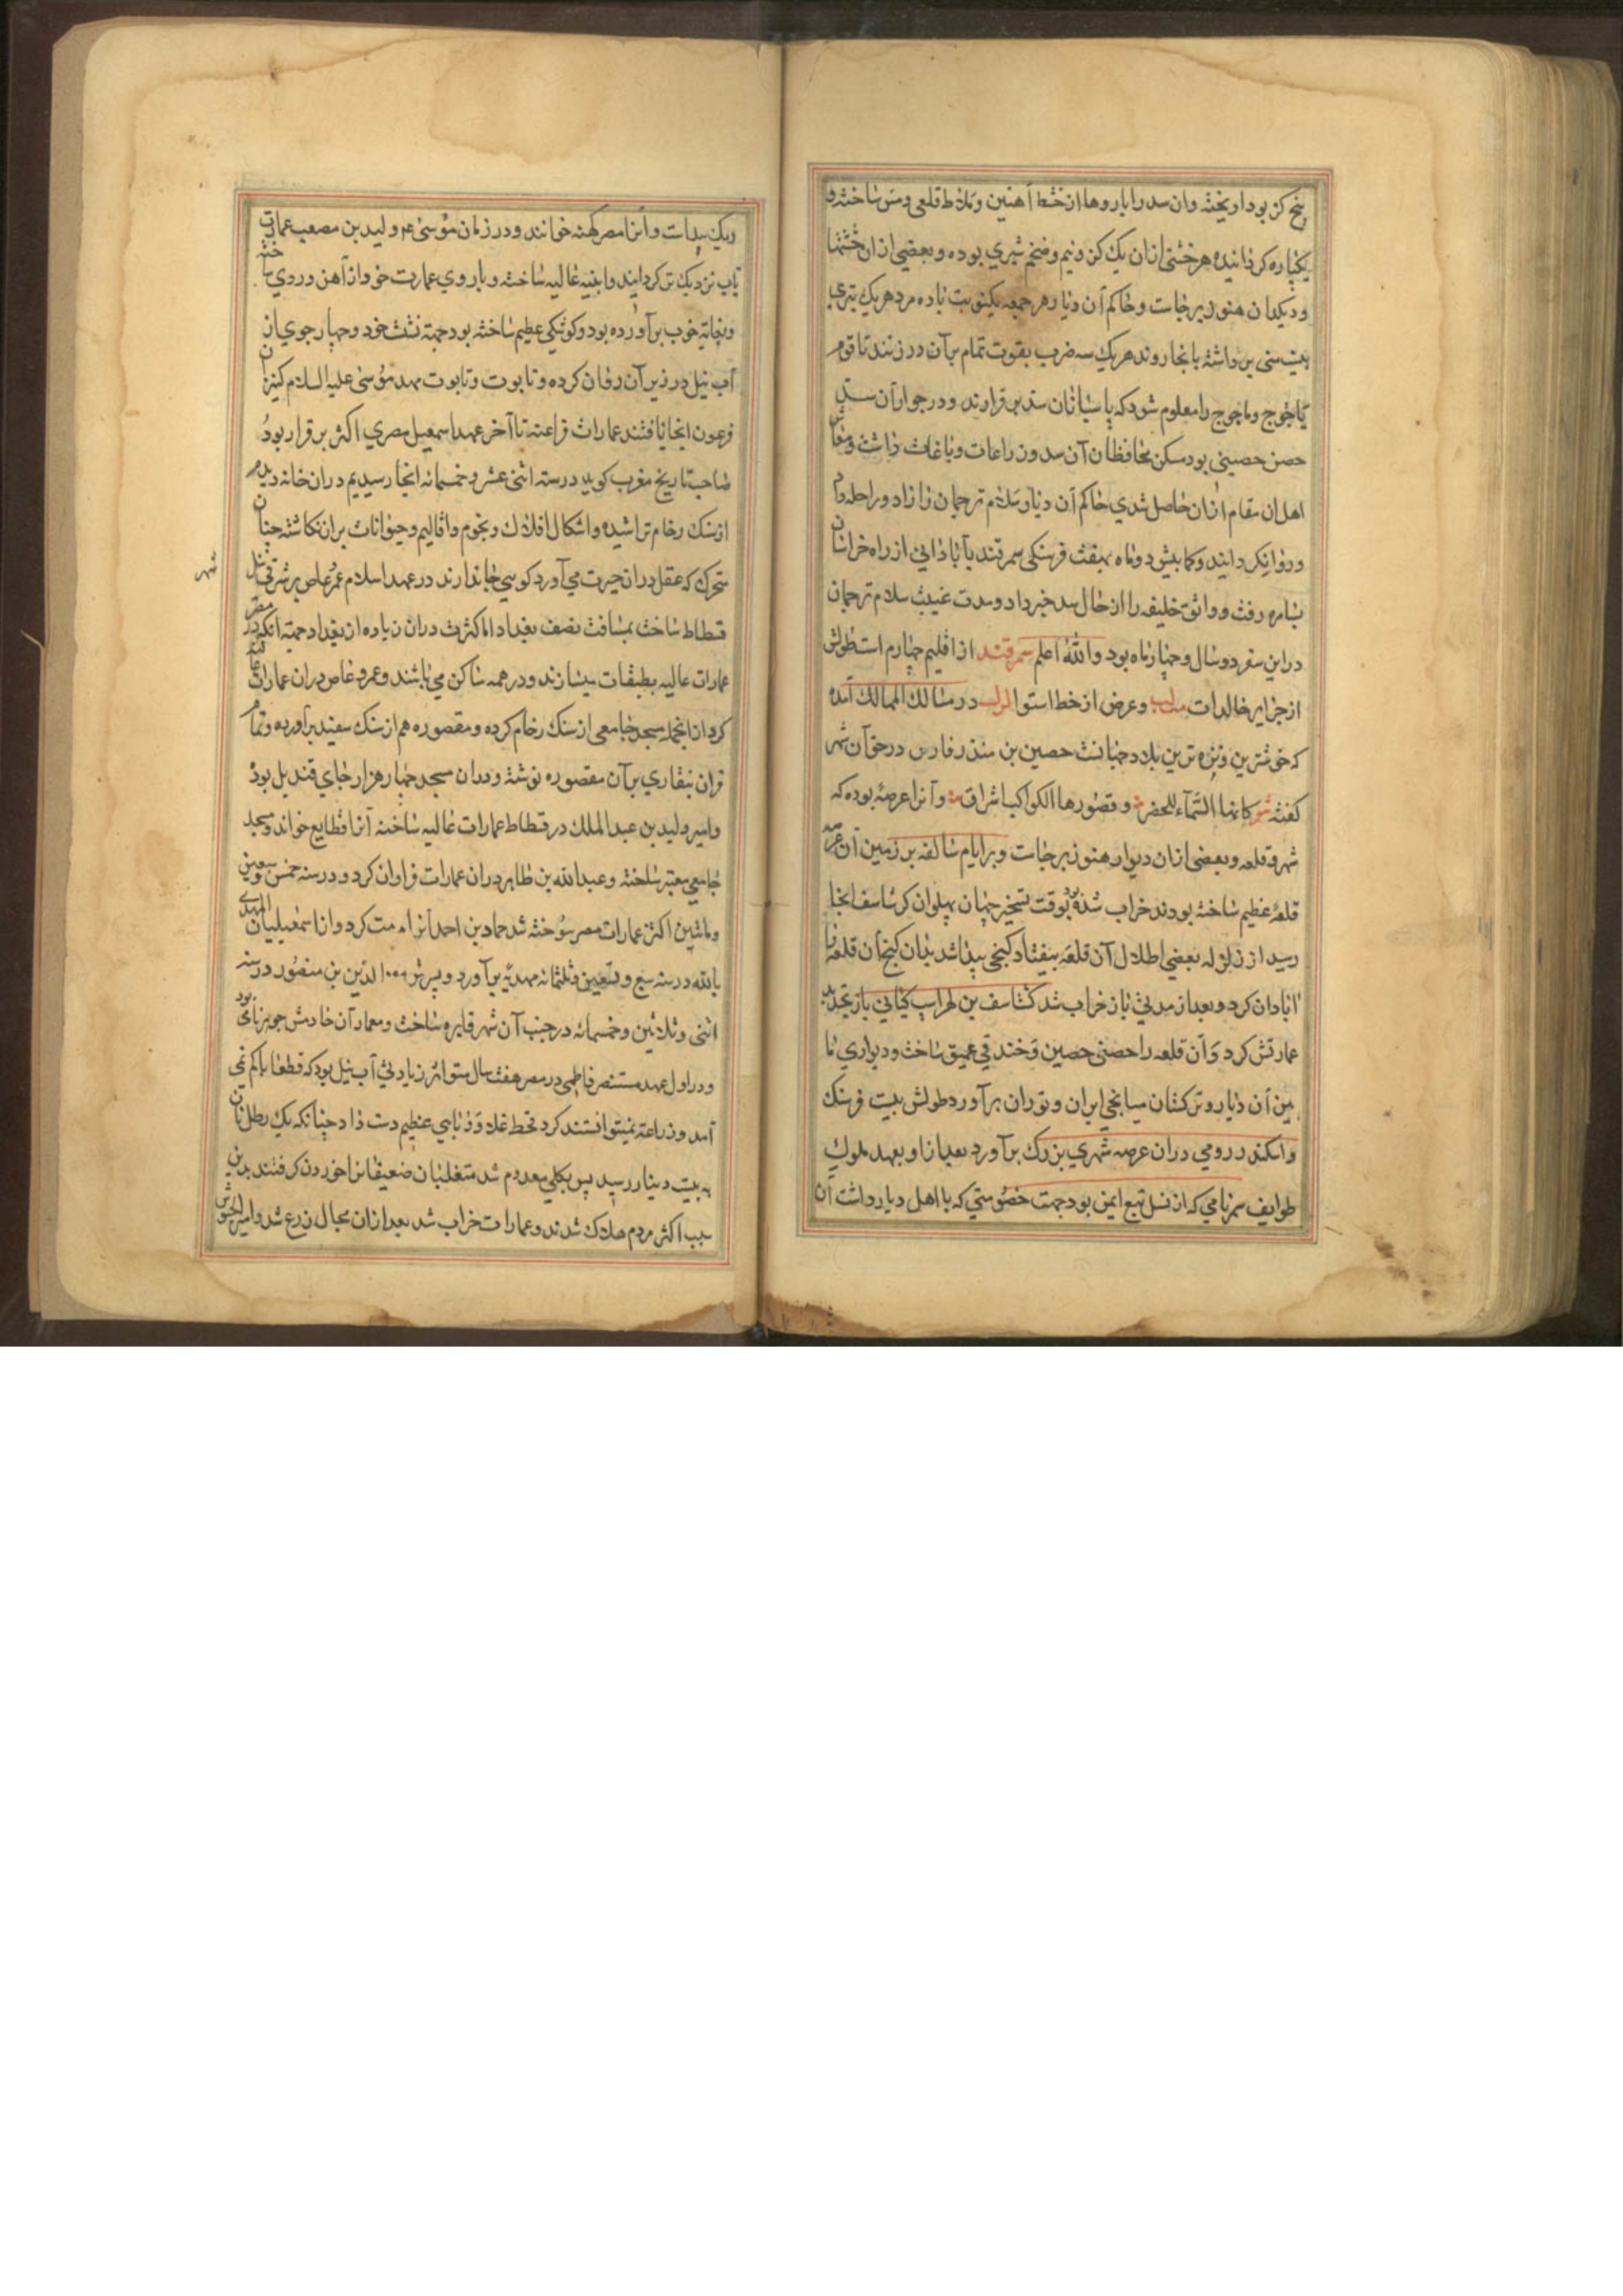 پنج کز بود اریخته وان سد را باروها از خشط آهنین و ملاط قلعی و مس ساخته و
یکپاره کردانیده هر خشتی ازان یک کز و نیم و ضخم شبری بوده و بعضی ازان خشتها
و دیکدان هنوز برجاست و حاکم آن دیار هر جمعه یکنوبت با ده مرد هر یک تبری
بیست منی برداشته بانجا روند هر یک سه ضرب بقوت تمام برآن در زنند تا قوم
یاجوج و ماجوج را معلوم شود که پاسبانان سد برقرارند و در جوار آن سد
حصن حصینی بود مسکن محافظان آن سد و زراعات و باغات داشت و معاش
اهل ان مقام ازان حاصل شدی حاکم آن دیار سلام ترجمان را زاد و راحله دا
و روانکردانید و کمابیش دو ماه بهفت فرسنکی سمرقند بآباذانی از راه خراسان
بسامره رفت و واثق خلیفه را از حال سد خبر داد و مدت غیبت سلام ترجمان
دراین سفر دو سال و چهار ماه بود والله اعلم سمرقند از اقلیم چهارم است طولش
از جزایر خالدات و عرض از خط استوا در مسالک الممالک آمده
که خوشترین و نزه ترین بلاد جهانست حصین بن منذر فارس در حق آن شهر
کفته شعر کانها السماء للخضر و قصورها الکواکب اشراق و آنرا عرصه بوده که
شهر و قلعه و بعضی ازان دیوار هنوز برجاست و برایام سالفه بر زمین آن عرصه
قلعهٔ عظیم ساخته بودند خراب شده بود بوقت تسخیر جهان پهلوان کرشاسف انجا
رسید از زلزله بعضی اطلال آن قلعه بیفتاد کنجی پیدا شد بدان کنج آن قلعه را
اباذان کرد و بعد از مدتی باز خراب شد کشتاسف بن لهراسب کیانی باز تجدید
عمارتش کرد و آن قلعه را حصنی حصین و خندقی عمیق ساخت و دیواری ما
بین آن دیار و ترکستان میانجی ایران و توران برآورد طولش بیست فرسنک
و اسکندر رومی دران عرصه شهری بزرک برآورد بعد ازاو بعهد ملوک
طوایف سمرنامی که از نسل تبع ایمن بود جهت خصومتی که با اهل دیار داشت آن
ریک پیداست و آنرا مصر کهنه خوانند و در زمان موسی ع م ولید بن مصعب عمارتی
بآب نزدیک تر کردانید و ابنیه عالیه ساخته و باروی عمارت خود از آهن و روی ساخته
و بغایة خوب برآورده بود و کوشکی عظیم ساخته بود جهة نشست خود و چهار جوی از
آب نیل در زیر آن روان کرده و تابوت و تابوت مهد موسی علیه السلام کنیزان
فرعون انجا یافتند عمارات فراعنه تا آخر عهد اسمعیل مصری اکثر برقرار بود
صاحب تاریخ مغرب کوید در سنه اثنی عشر و خمسمائه انجا رسیدیم دران خانه دیدم
از سنک رخام تراشیده و اشکال افلاک و نجوم و اقالیم و حیوانات بران نکاشته چنان
متحرک که عقل دران حیرت می آورد کوسی جاندارند در عهد اسلام عمر عاص بر شرقی نیل
شهر
قسطاط ساخت بمسافت نصف بغداد اما کثرت دران زیاده از بغداد جهة آنکه در مصر
عمارات عالیه بطبقات میسازند و در همه ساکن می باشند و عمرو عاص دران عمارات عالیه
کرد از انجمله مسجد جامعی از سنک رخام کرده و مقصوره هم از سنک سفید برآورده و تمام
قران بنقاری برآن مقصوره نوشته و دران مسجد چهار هزار جای قندیل بود
و امیر ولید بن عبد الملک در قسطاط عمارات عالیه ساخته آنرا قطایع خواند و مسجد
جامعی معتبر ساخته و عبد الله بن طاهر دران عمارات فراوان کرد و در سنه خمس و تسعین
و مائتین اکثر عمارات مصر سوخته شد حماد بن احمد آنرا مرمت کرد و از اسمعیلیان المهدی
بالله در سنه سبع و تسعین و ثلثمائه مهدیه برآورد و پسرش الدین بن منصور در سنه
اثنی و ثلاثین و خمسمائه در جنب آن شهر قاهره ساخت و معمار آن خادمش جوهر نامی بود
و در اول عهد مستنصر فاطمی در مصر هفت سال متواتر زیادتی آب نیل بود که قطعا با کم نمی
آمد و زراعة نمیتوانستند کرد قحط غلا و نایابی عظیم دست داد چنانکه یک رطل نان
به بیست دینار رسید پس بکلی معدوم شد متغلبان ضعیفانرا خوردن کرفتند بدین
سبب اکثر مردم هلاک شدند و عمارات خراب شد بعد ازان مجال زرع شد و امیر الجیوش